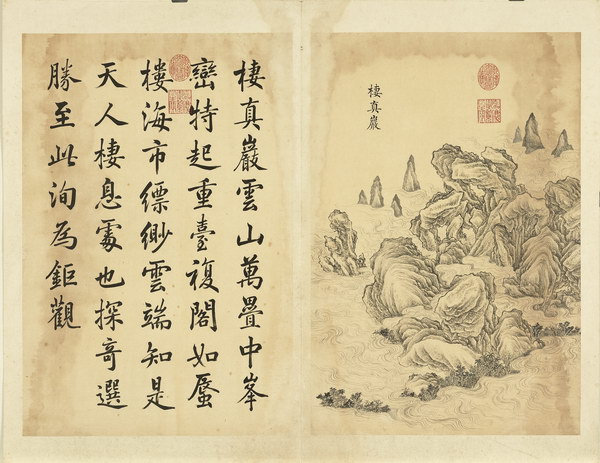 棲真巖
棲真巖雲山萬疊中峯
巒特起重臺複閣如蜃
樓海市縹緲雲端知是
天人棲息處也探竒選
勝至此洵為鉅觀